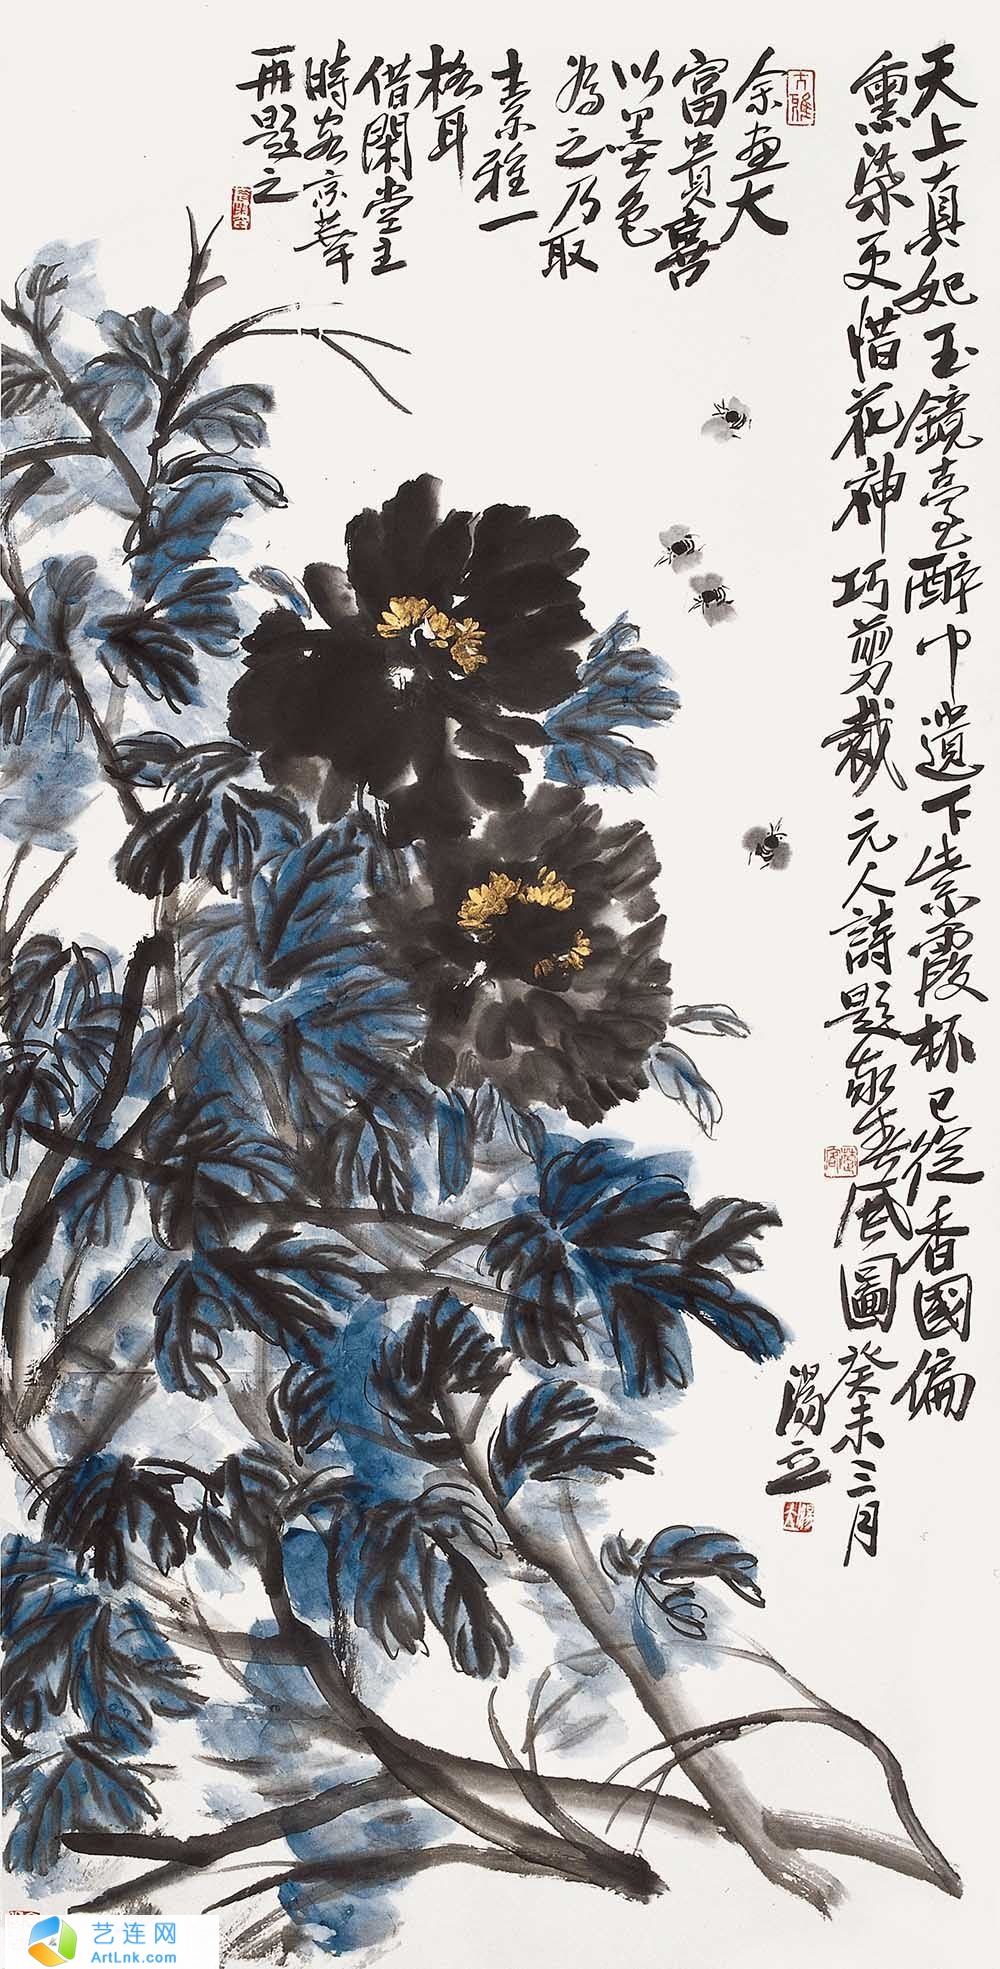 天上真妃玉鏡臺醉中遺下紫霞杯已從香國偏
熏染更惜花神巧剪裁元人詩題春風圖癸未三月
湯立
余畫大
富貴喜
以墨色
為之乃取
素雅一
格耳
借閑堂主
時客京華
再題之
大雅
艺连网
ArtLnk.com